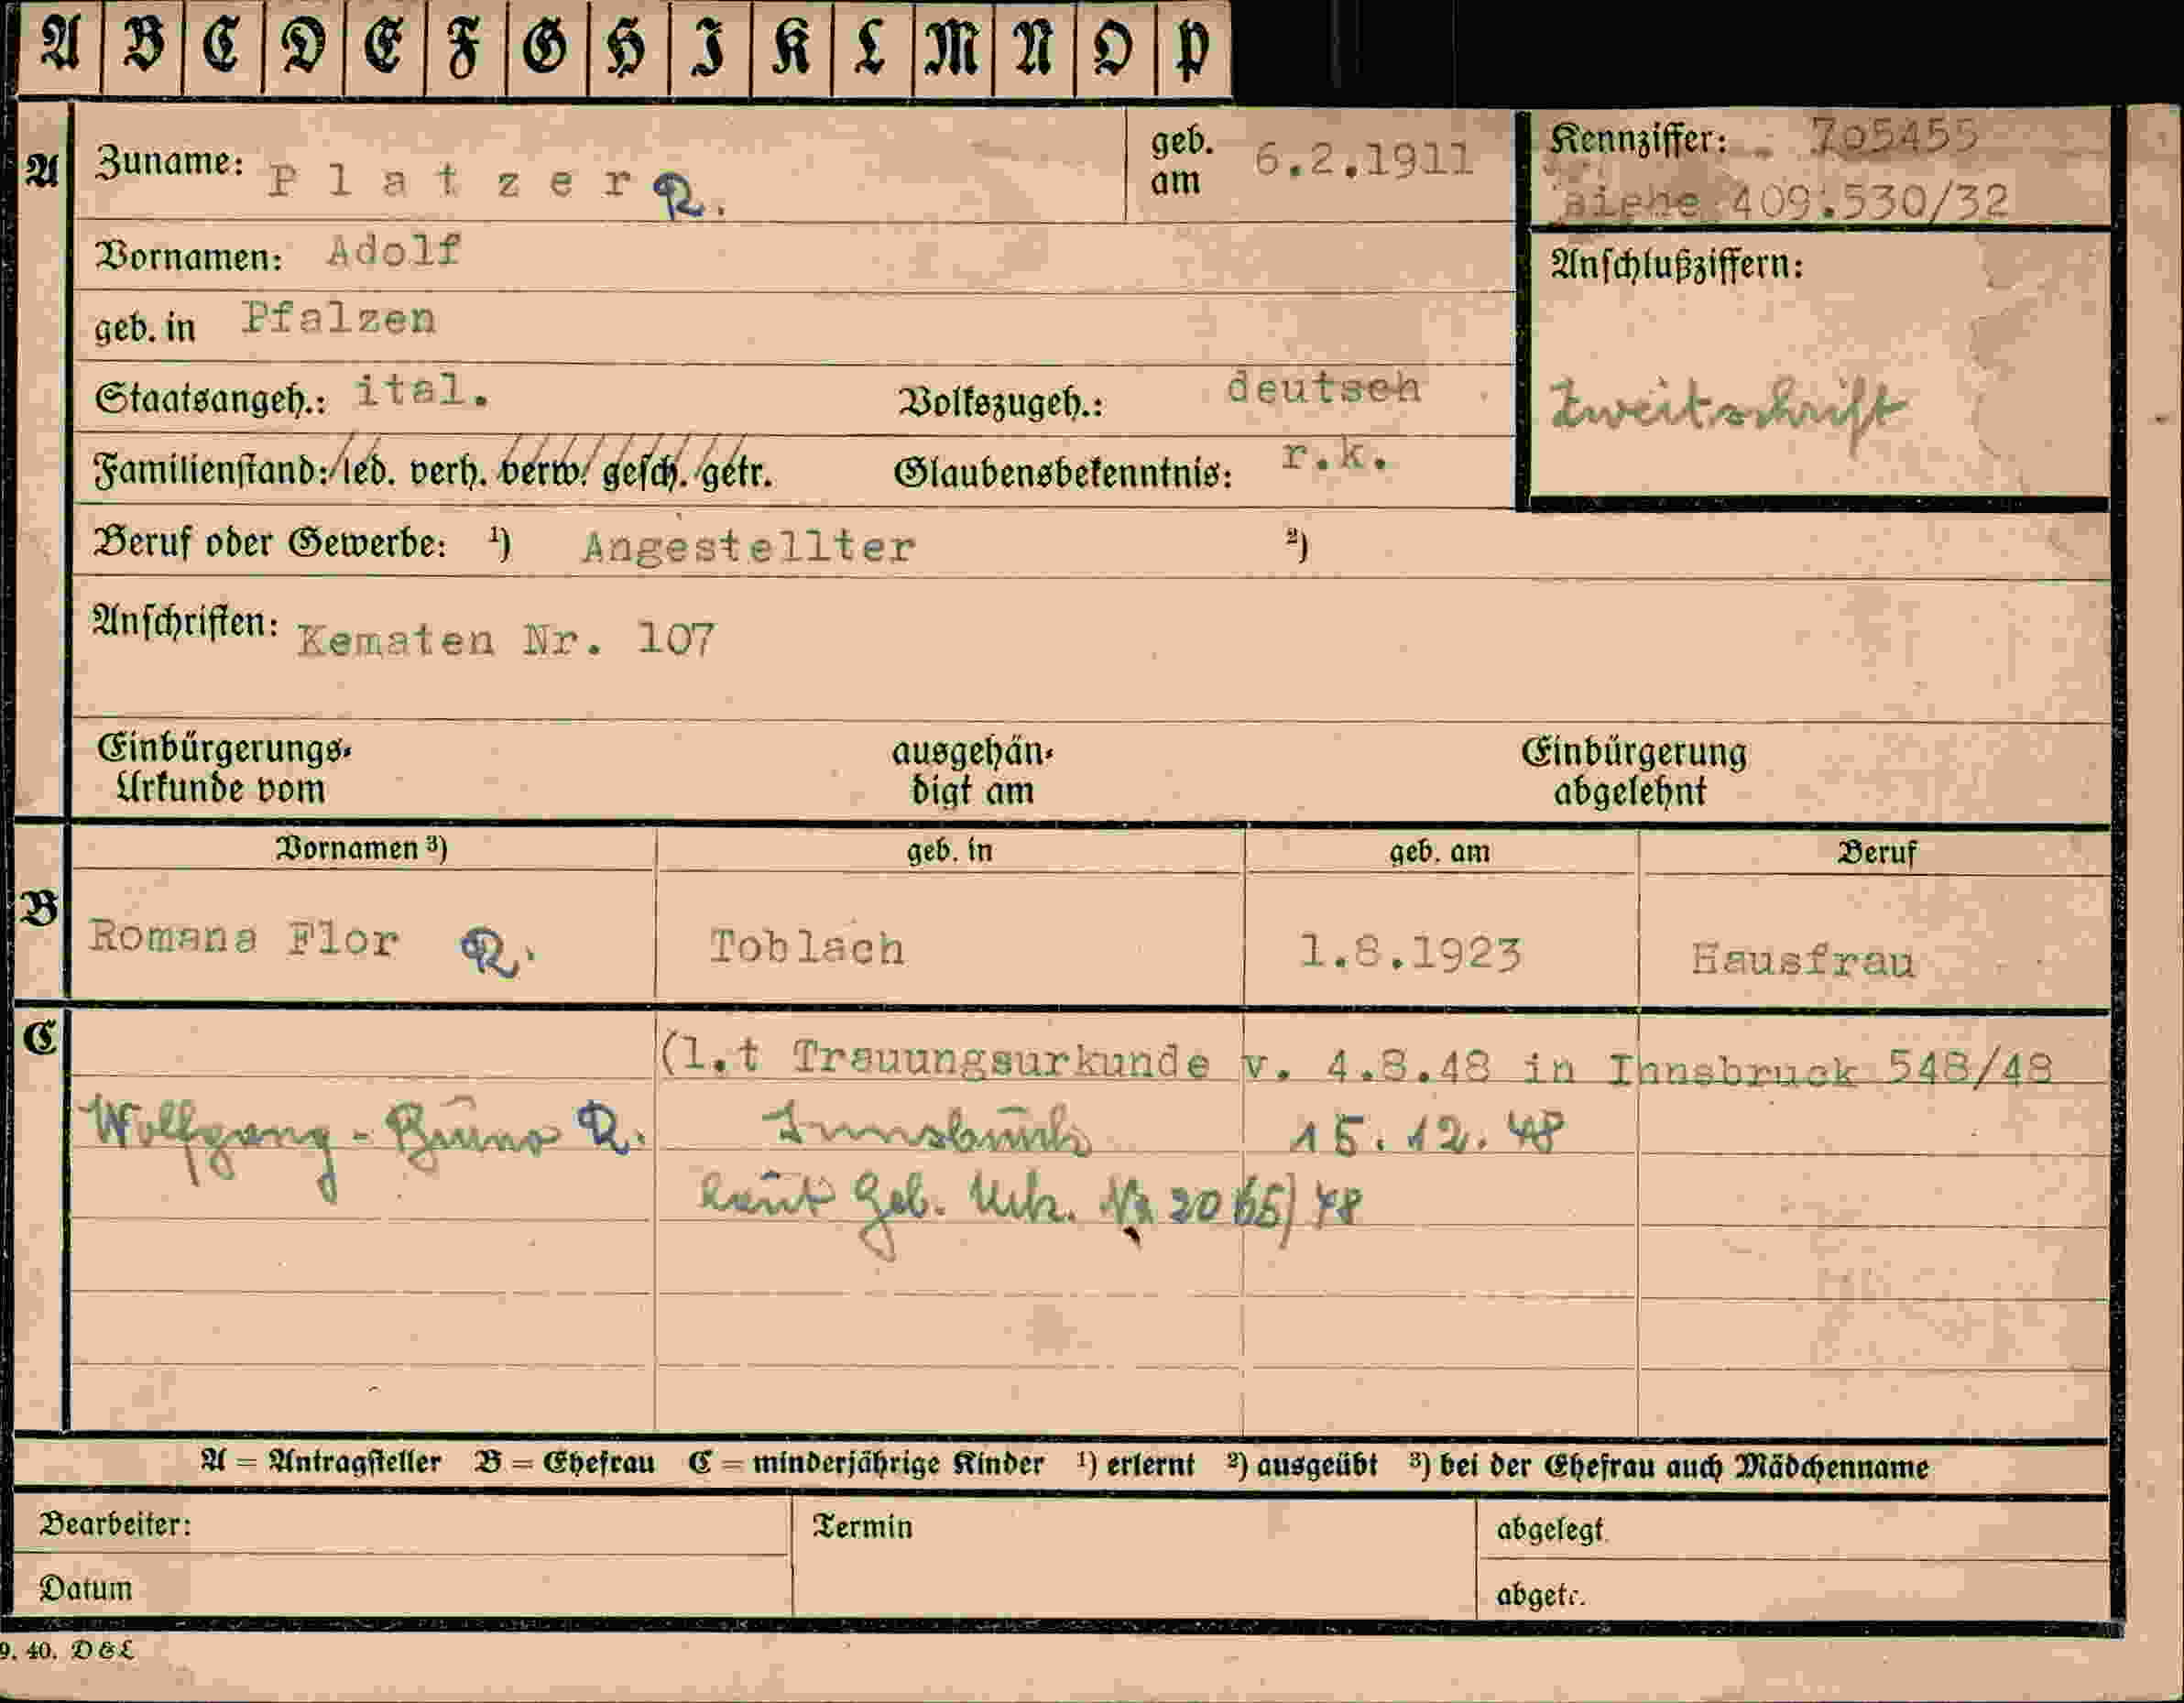 A B C D E F G H I K L M N O P
A Zuname: Platzer R. geb. am 6.2.1911 Kennziffer: 705455
siehe 409:530/32
Vornamen: Adolf Anschlußziffern:
geb. in Pfalzen
Staatsangeh.: ital. Volkszugeh.: deutsch Zweitschrift
Familienstand: led. verh. verw. gesch. getr. Glaubensbekenntnis: r.k.
Beruf oder Gewerbe: ¹) Angestellter ²)
Anschriften: Kematen Nr. 107
Einbürgerungs- ausgehän- Einbürgerung
Urkunde vom digt am abgelehnt
Vornamen ³) geb. in geb. am Beruf
B Romana Flor R. Toblach 1.8.1923 Hausfrau
C (l.t Trauungsurkunde v. 4.8.48 in Innsbruck 548/48
Wolfgang - Bruno R. Innsbruck 15.12.48
laut Geb. Urk. Nr 2065/48
A = Antragsteller B = Ehefrau C = minderjährige Kinder ¹) erlernt ²) ausgeübt ³) bei der Ehefrau auch Mädchenname
Bearbeiter: Termin abgelegt
Datum abgetr.
9. 40. D&L